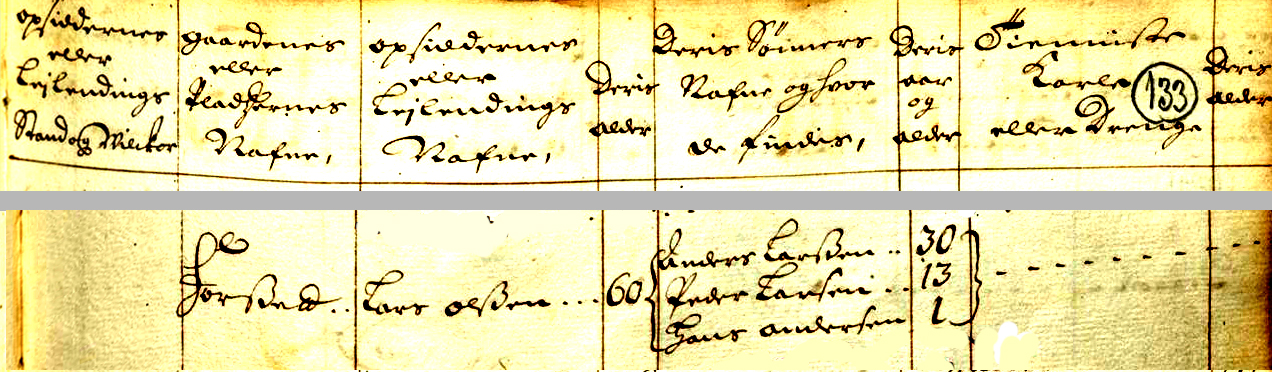 opsiddernes
eller
Lejlendings
Stand og Vilckor
gaardenes
eller
Pladzernes
Nafne,
opsiddernes
eller
Lejlendings
Nafne,
Deris
alder
Deris Sønners
Nafne og hvor
de findis,
Deris
aar
og
alder
Tienniste
Karle
eller Drenge
133
Deris
alder
Lars olßen ... 60
Anders Larßen .. 30
Peder Larsen .. 13
Hans andersen 1